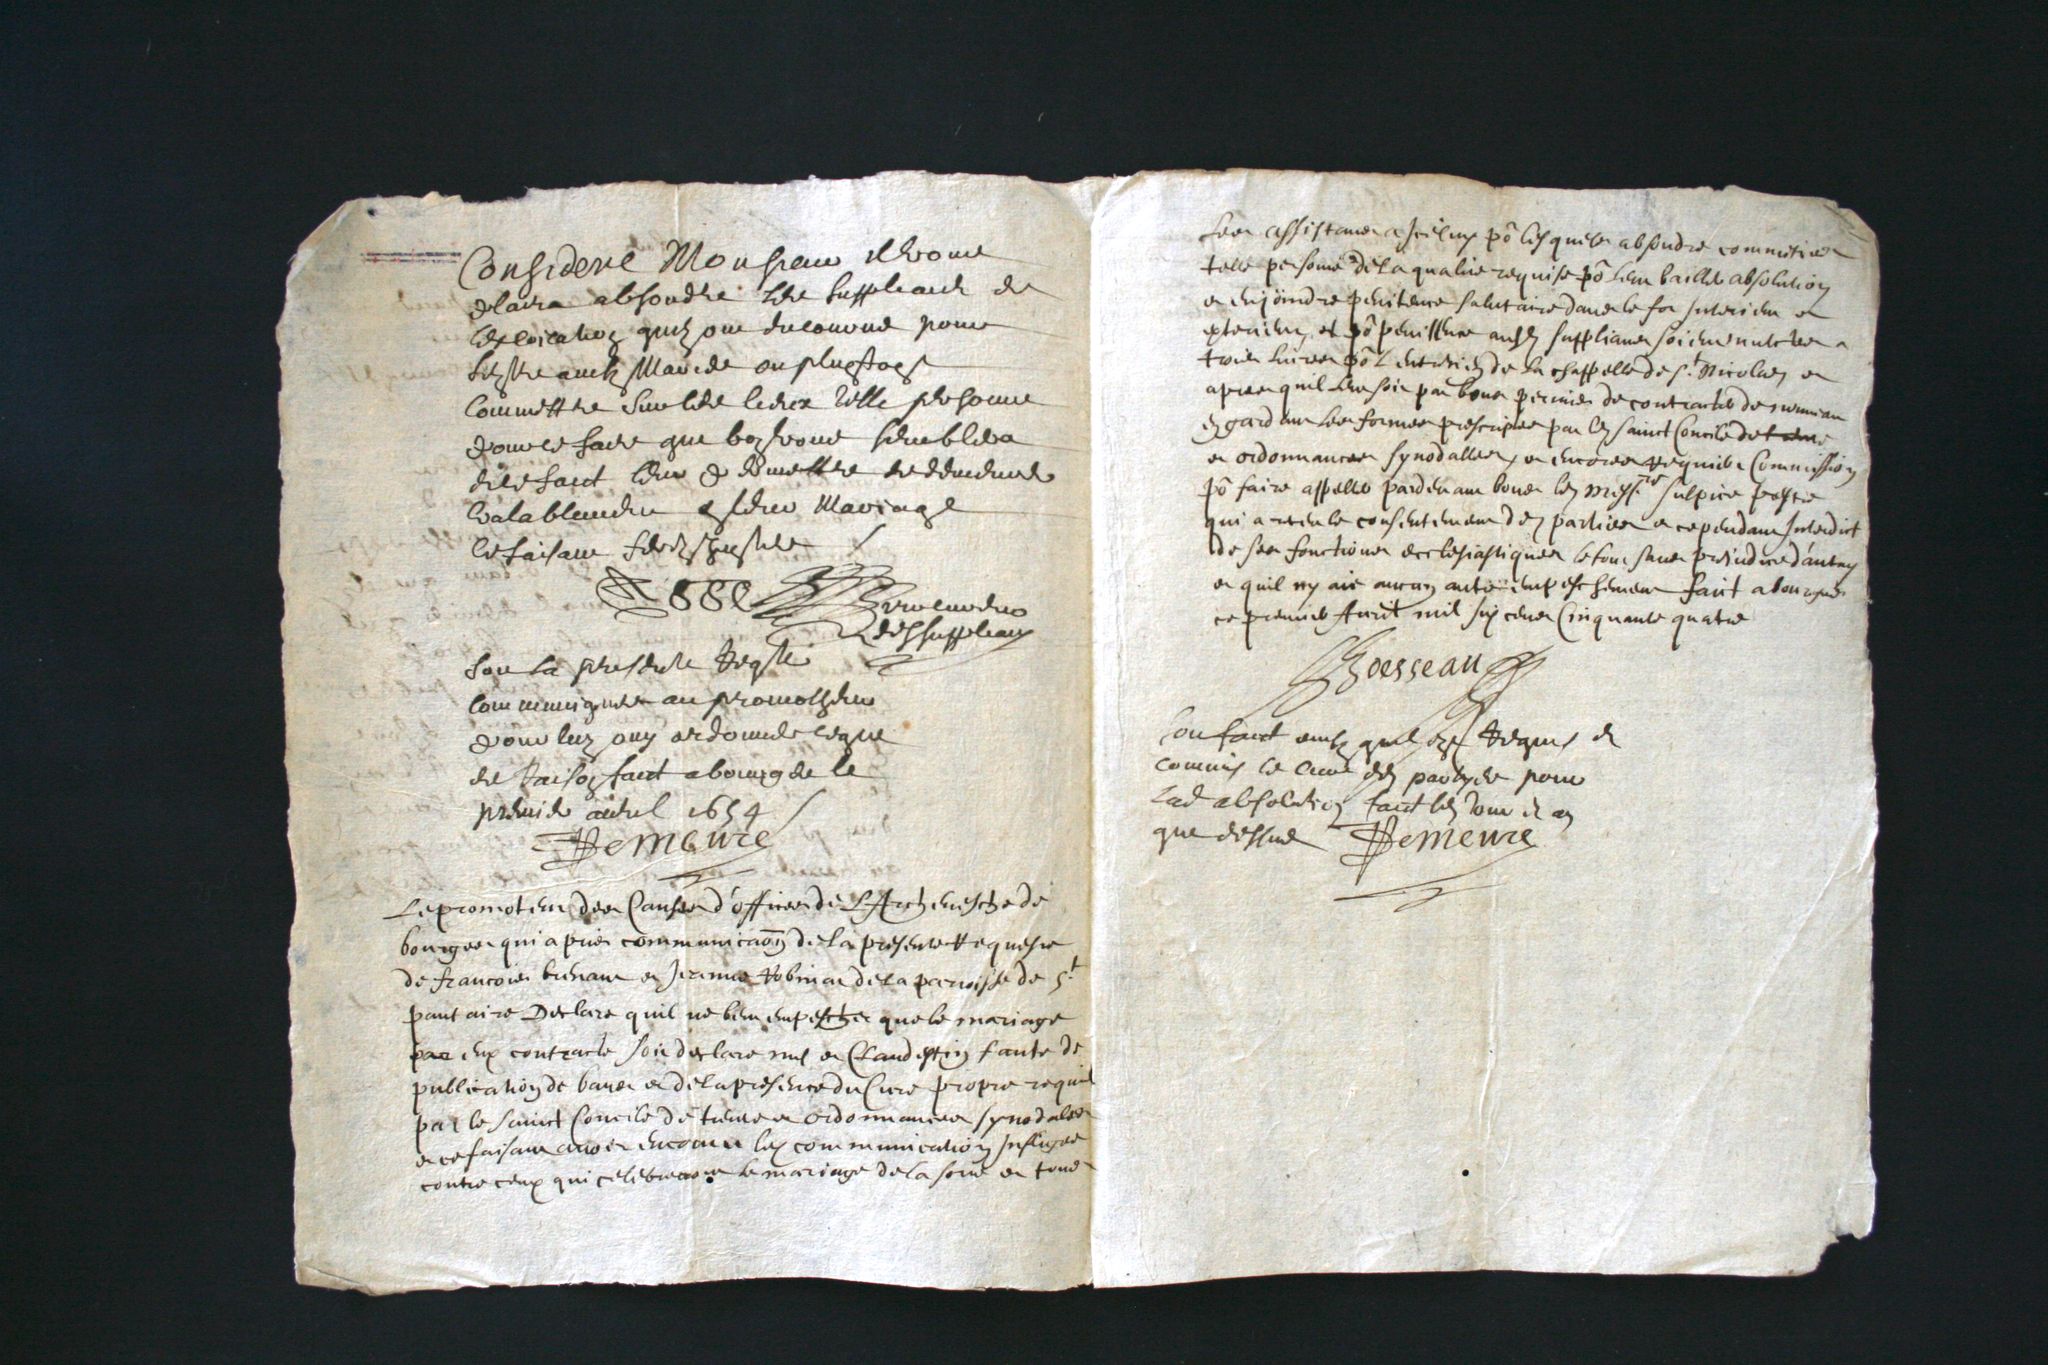 Considere Monsieur Il vous
plaira absoudre les suppliants de
lexcication quilz ont encourue pour
sestre ainsy Mariés ou plustost
commettre sur les lieux telle personne
pour ce faire que vous semblera
de le faict leur permettre
valablement leur Mariage
ce faisant
procureur
des suppliants
Soit la presente reqte
communiquée au promotheur
pour luy ouy ordonner ce que
de raison faict a bourges le
premier avril 1654
Demeure
Le promoteur des Causes d'offices de L'Archevesche de
bourges qui a pris communicaõn de la presente Requeste
de francois et Jeanne Robin de la parroisse de St
pantaire Declare quil ne veut empescher que le mariage
par eux contracte soit declare nul et Clandestin faute de
publication de bans et de la presence du Cure propre requise
par le sainct Concile de trente et ordonnances synodales
et ce faisant avoir encouru lexcommunication Infligee
contre ceux qui celebrent le mariage de la sorte et tous
les assistans a Iceluy põ lesquels absoudre commettre
telle personne de la qualite requise põ leur bailler absolution
et enjoindre penitence salutaire dans le for Interieur et
exterieur, et põ penitence ausdits supplians soient mulctes a
trois livres põ Lentretien de la chappelle de St Nicolas et
apres quil leur soit par vous permis de contracter de nouveau
en gardant les formes prescriptes par le sainct Concile de trente
et ordonnances synodalles, et encores requiers Commission
põ faire appeller pardevant vous ledit Messre sulpice
qui a receu le consentement des parties et cependant Interdict
de ses fonctions ecclesiastiques le tout sans prejudice d'autruy
et quil ny aie aucun autre empeschement faict a bourges
ce premier Avril mil six cens Cinquante quatre
Boesseau
Soit faict ainsy quil est Requis et
commis le Curé des partyes pour
lad absolution faict les Jour et an
que dessus Demeure